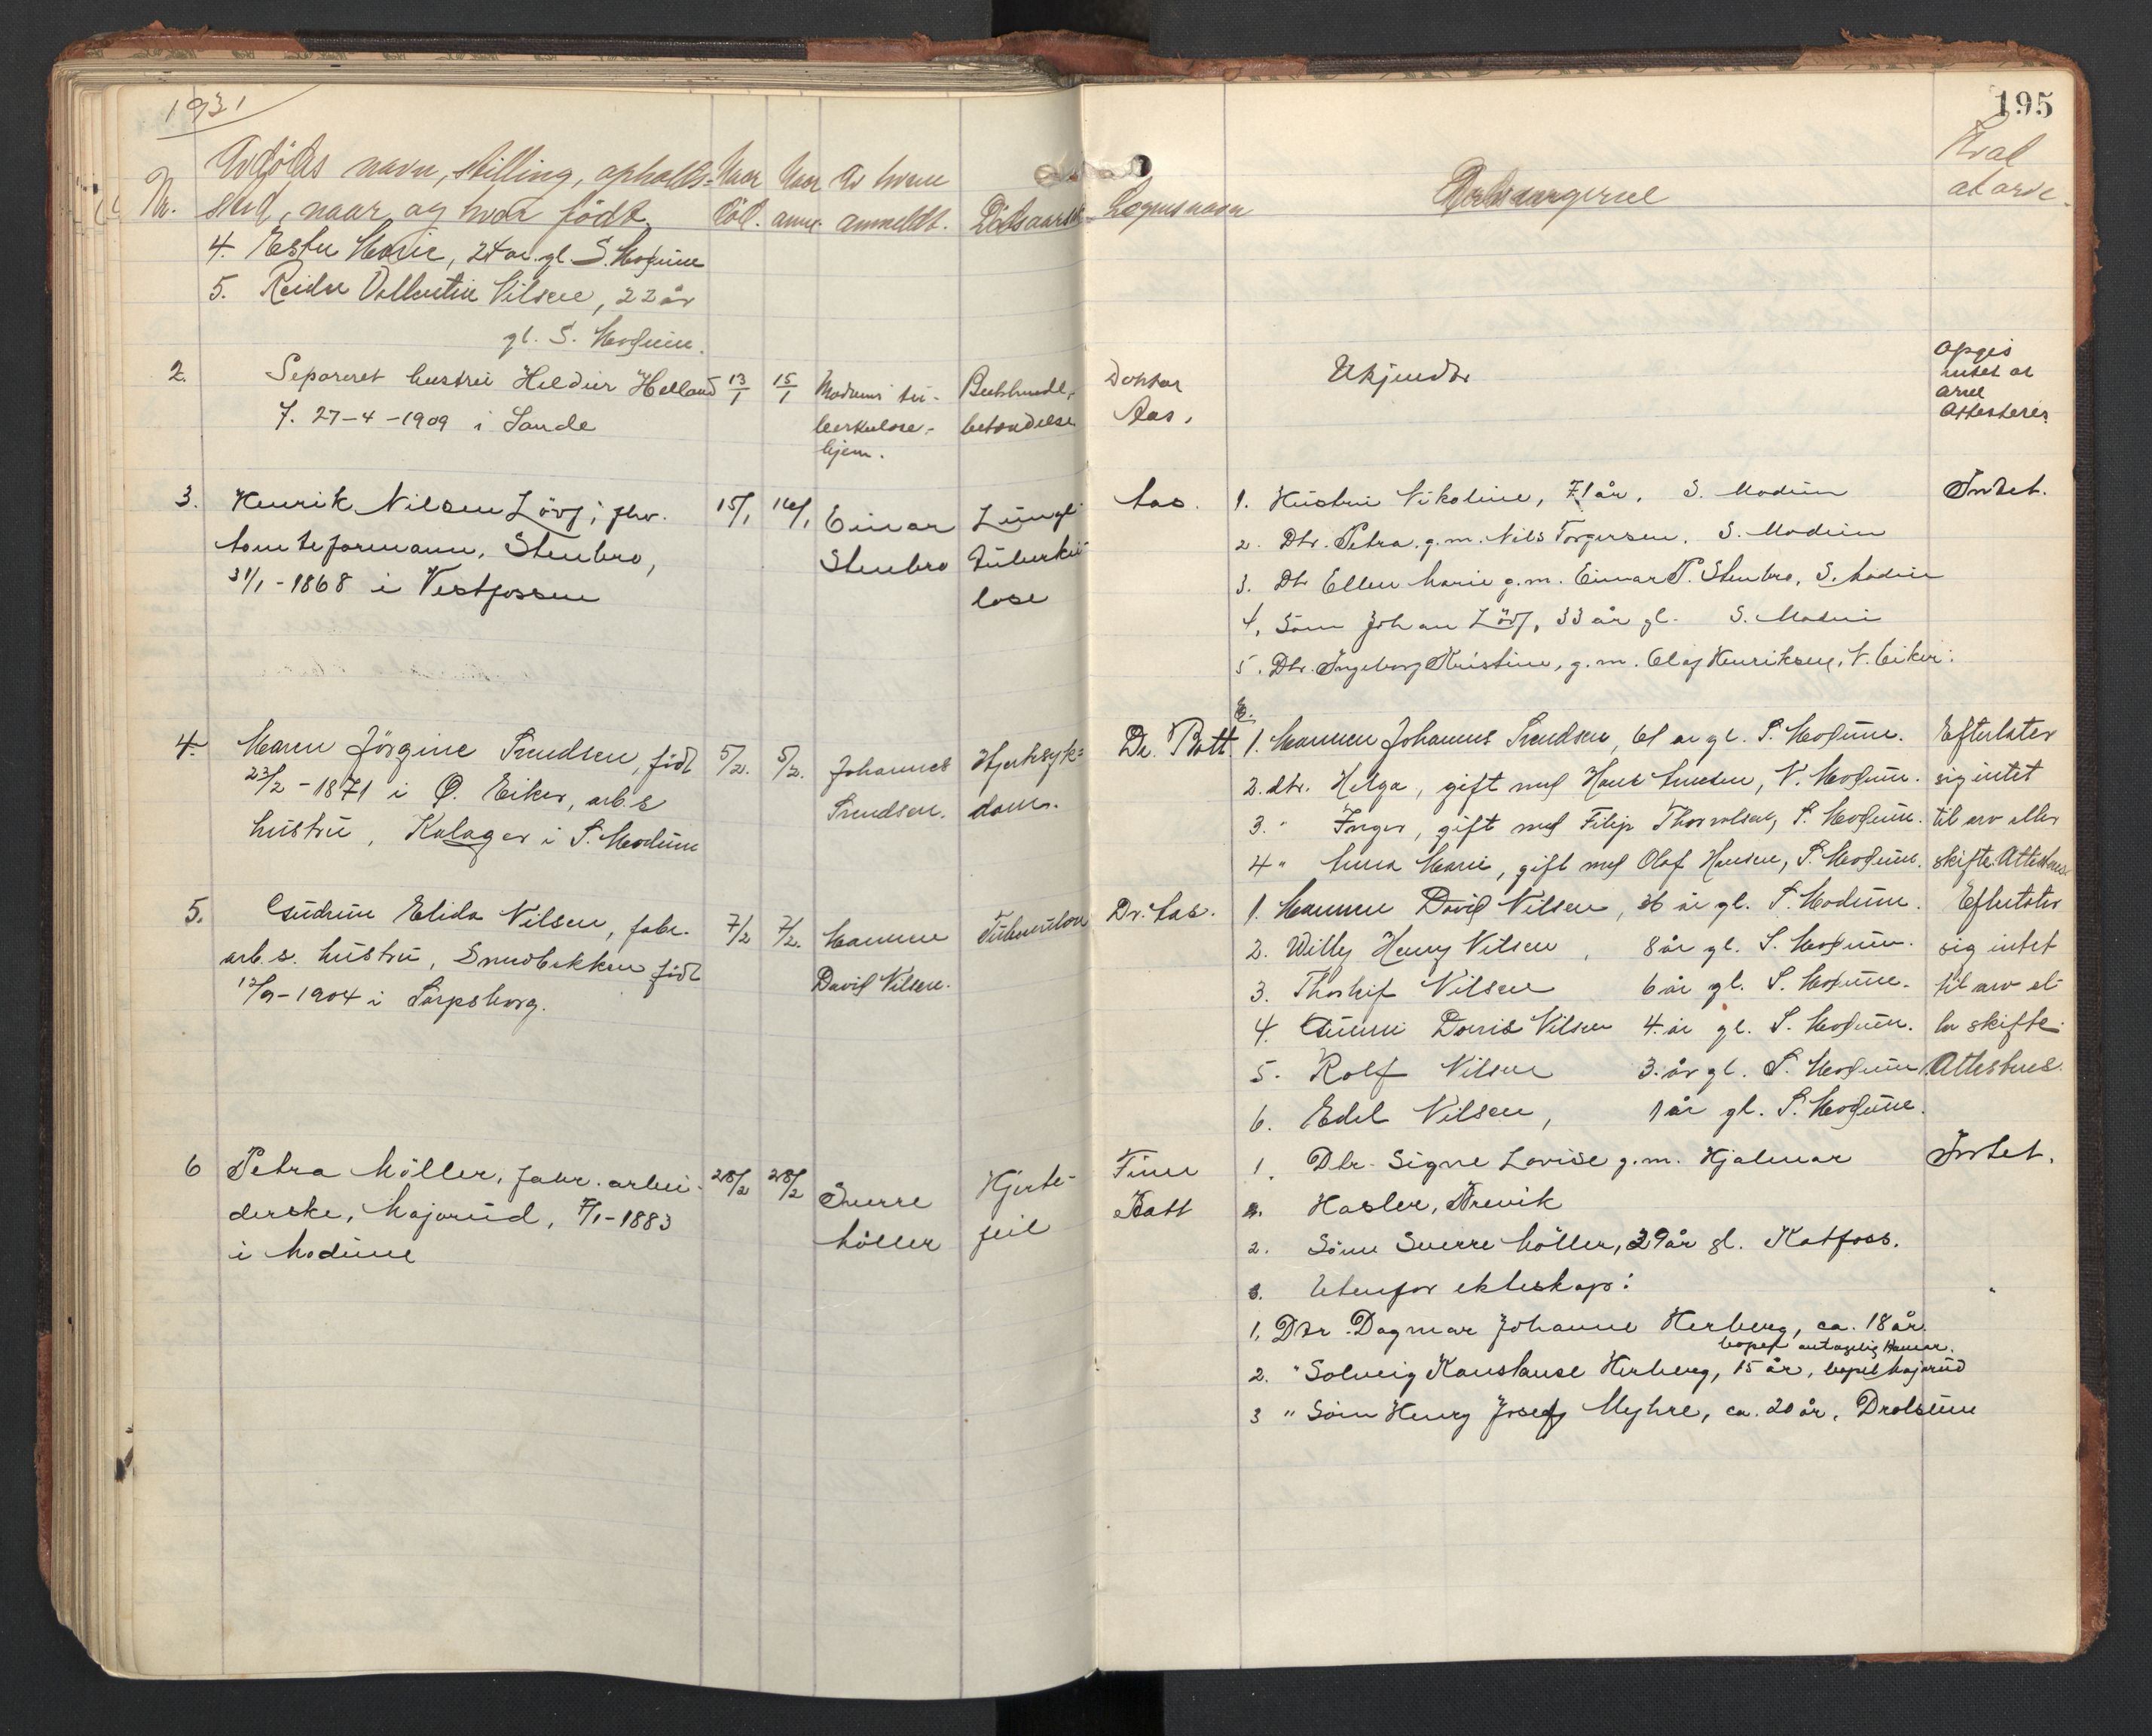 1931
195
Nr. Avdødes navn, stilling, opholds-
sted, naar og hvor födt.
Naar död.
Naar anm.
Av hvem anmeldt.
Dödsaarsak
Lægens navn
Arvingerne
Hvad
at arve.
4. Marie, 24 år gl. S. Modum
5. Reidar Vallentin Nilsen, 22 år
gl. S. Modum.
2. Separeret hustru Helland 13/1 15/1 Modums tu-
f. 27-4-1909 i Sande
berkulose-
hjem.
betændelse
Doktor
Aas.
Ukjendt
Opgis
intet at
arve
Attesteres
3. Henrik Nilsen Lövf, fhv.
tomteformann, Stenbro,
31/1-1868 i Vestfossen
15/1 16/1 Einar
Stenbro
Lunge
Tuberku-
lose
Aas.
1. Hustru Nikoline, 71 år, S. Modum
2. Dtr. Petra g.m. Nils Torgersen, S. Modum
3. Dtr Ellen Marie g.m. Einar P. Stenbro, S. Modum
4. Sönn Johan Lövf, 33 år gl. S. Modum
5. Dtr. Ingeborg Kristine, g.m. Olaf Henriksen, N. Eiker.
Intet.
4. Maren Jörgine Svendsen, födt
23/2-1871 i Ø. Eiker, arb.s
hustru, Kalager i S. Modum
5/2. 5/2. Johannes
Svendsen.
Hjertesyk-
dom.
Dr. Bott.
1. Mannen Johannes Svendsen, 61 år gl. S. Modum.
2. dtr. Helga, gift med Hans , N. Modum.
3. " Inger, gift med Filip Thorvalsen, S. Modum.
4 " Anna Marie, gift med Olaf Hansen, S. Modum.
Efterlater
sig intet
til arv eller
skifte. Attesteres
5. Gudrun Elida Nilsen, fabr.
arb.s. hustru, Smedbekken födt
12/9-1904 i Sarpsborg.
7/2 7/2. Mannen
David Nilsen.
Tuberkulose
Dr. Aas.
1. Mannen David Nilsen, 36 år gl. S. Modum.
2. Willy Henry Nilsen, 8 år gl. S. Modum.
3. Thorleif Nilsen 6 år gl. S. Modum.
4. Gunni Dorris Nilsen 4. år gl. S. Modum.
5. Rolf Nilsen 3. år gl. S. Modum
6. Edel Nilsen, 1 år gl. S. Modum.
Efterlater
sig intet
til arv el-
ler skifte.
Attesteres.
6 Petra Möller, fabr. arbei-
derske, Majorud, 7/1-1883
i Modum
28/2 28/2 Sverre
Möller
Hjerte-
feil
Finn
Batt
1. Dtr. Signe Lovise g.m. Hjalmar
Hasler, Brevik
2. Sönn Sverre Möller, 29 år gl. Katfoss.
3. Utenfor ekteskap:
1. Dtr. Dagmar Johanne Herberg, ca. 18 år.
bopel antagelig Hamar.
2. " Solveig Konstanse Herberg, 15 år, bopel Majorud
3 " Sönn Henry Josef Myhre, ca. 20 år, Drolsum
Intet.